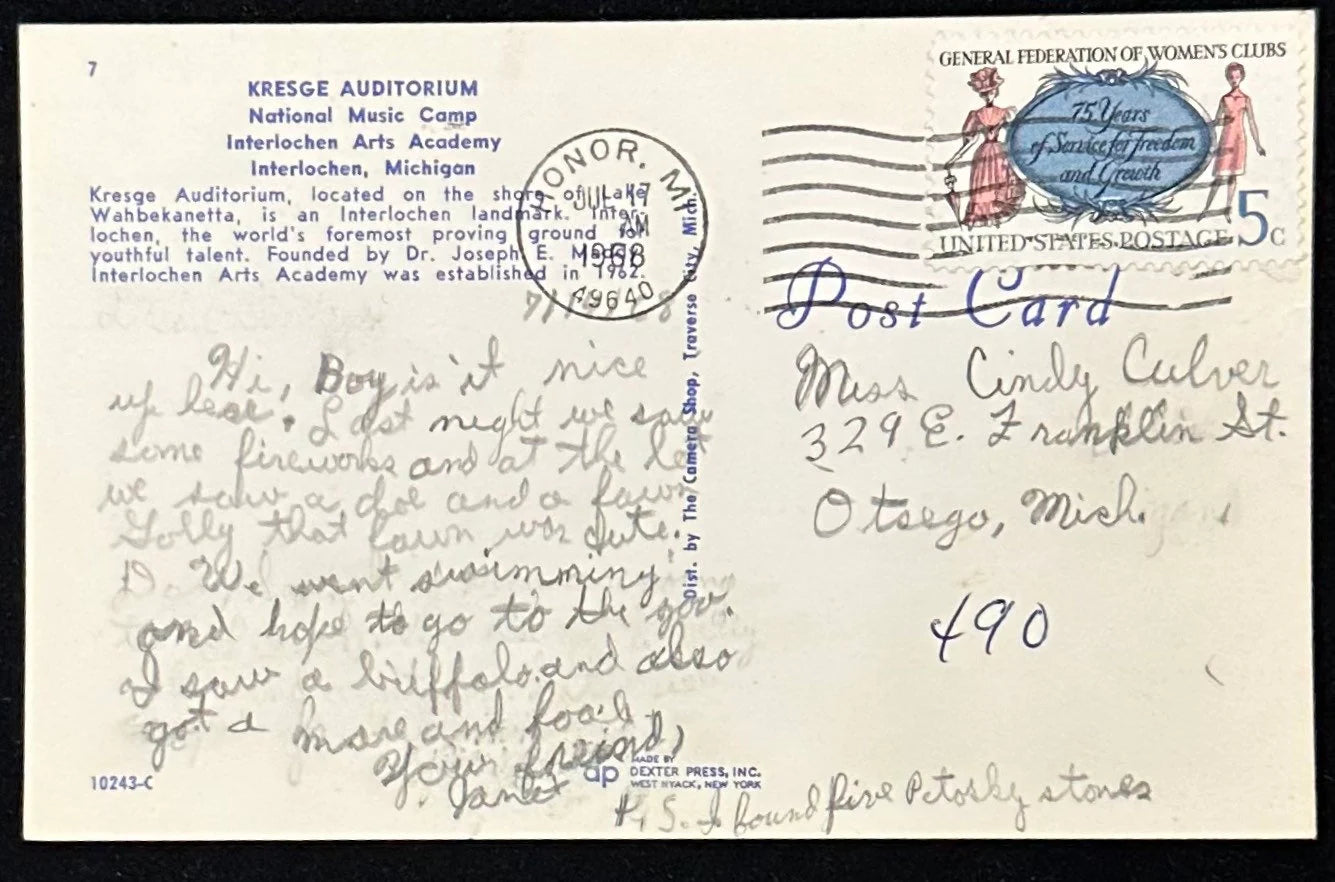 7
KRESGE AUDITORIUM
National Music Camp
Interlochen Arts Academy
Interlochen, Michigan
Kresge Auditorium, located on the shore of Lake
Wahbekanetta, is an Interlochen landmark. Inter-
lochen, the world's foremost proving ground for
youthful talent. Founded by Dr. Joseph E. Maddy
Interlochen Arts Academy was established in 1962.
HONOR, MI
JUL 17
AM
1968
49640
GENERAL FEDERATION OF WOMEN'S CLUBS
75 Years
of Service for Freedom
and Growth
UNITED STATES POSTAGE 5c
Post Card
Hi, Boy is it nice
up here. Last night we saw
some fireworks and at the last
we saw a doe and a fawn
Golly that fawn was cute.
We went swimming
and hope to go to the zoo.
I saw a buffalo and also
got a mare and foal.
Your freind,
Janet
P.S. I found five Petosky stones
Dist. by The Camera Shop, Traverse City, Mich.
Miss Cindy Culver
329 E. Franklin St.
Otsego, Mich.
490
10243-C
dp
MADE BY
DEXTER PRESS, INC.
WEST NYACK, NEW YORK